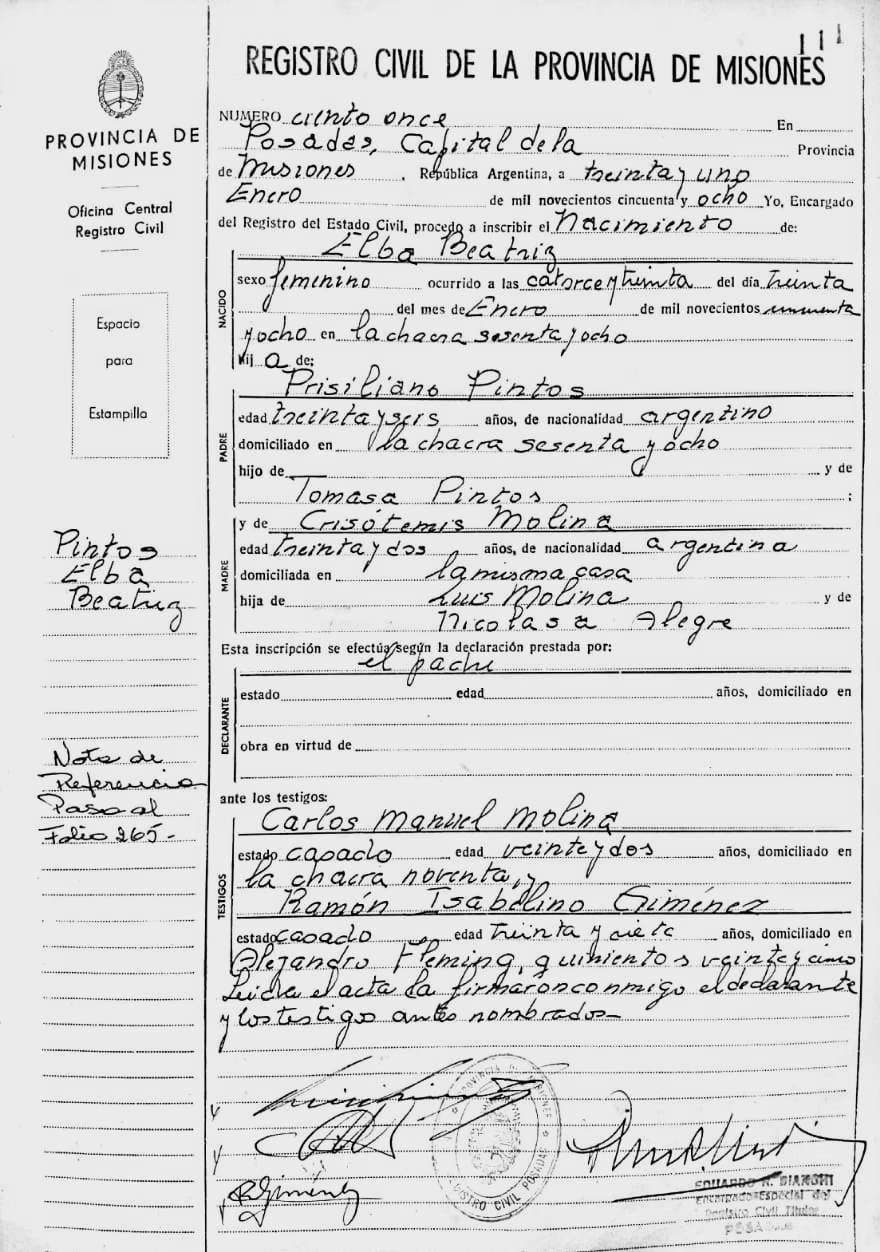 111
REGISTRO CIVIL DE LA PROVINCIA DE MISIONES
PROVINCIA DE
MISIONES
Oficina Central
Registro Civil
Espacio
para
Estampilla
Pintos
Elba
Beatriz
Nota de
Referencia
Paso al
Folio 265.-
NUMERO ciento once En
Posadas, Capital de la Provincia
de Misiones . República Argentina, a treinta y uno
Enero de mil novecientos cincuenta y ocho Yo, Encargado
del Registro del Estado Civil, procedo a inscribir el Nacimiento de:
NACIDO
Elba Beatriz
sexo femenino ocurrido a las catorce y treinta del día treinta
del mes de Enero de mil novecientos cincuenta
y ocho en la chacra sesenta y ocho
hij a de:
PADRE
Prisiliano Pintos
edad treinta y seis años, de nacionalidad argentino
domiciliado en la chacra sesenta y ocho
hijo de y de
Tomasa Pintos ;
MADRE
y de Crisótemis Molina
edad treinta y dos años, de nacionalidad argentina
domiciliada en la misma casa
hija de Luis Molina y de
Nicolasa Alegre
Esta inscripción se efectúa según la declaración prestada por:
el padre
DECLARANTE
estado edad años, domiciliado en
obra en virtud de
ante los testigos:
TESTIGOS
Carlos Manuel Molina
estado casado edad veinte y dos años, domiciliado en
la chacra noventa, y
Ramón Isabelino Giménez
estado casado edad treinta y siete años, domiciliado en
Alejandro Fleming, quinientos veinte y cinco
Leida el acta la firmaron conmigo el declarante
y los testigos antes nombrados-
R Giménez
REGISTRO CIVIL POSADAS
EDUARDO R. BIANCHI
Encargado Especial del
Registro Civil Titular
POSADAS